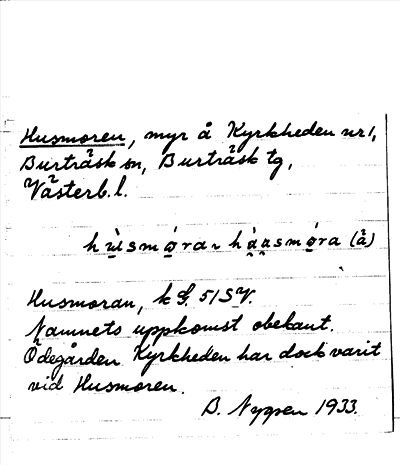 Husmoren, myr å Kyrkheden nr 1,
Burträsk sn, Burträsk tg,
Västerb. l.
hu̱̇smo̱ra ~ hȧ̱u̱smo̱ra (å)
Husmoran, k 51 SV.
Namnets uppkomst obekant.
Ödegården Kyrkheden har dock varit
vid Husmoren.
B. Nygren 1933.